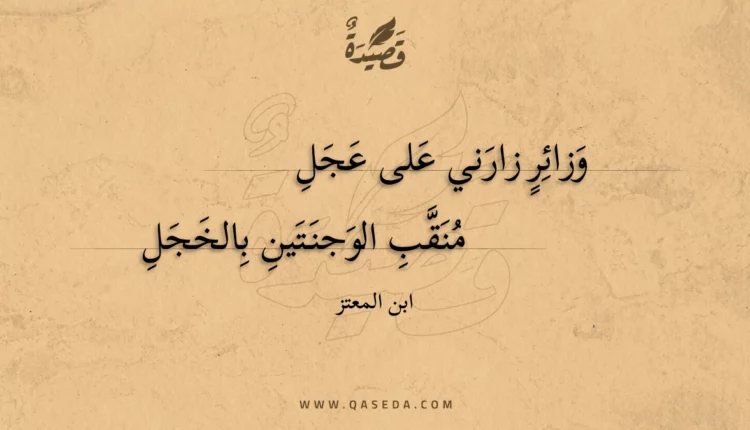 قَصِيدَةٌ
وَزائِرٍ زارَني عَلى عَجَلِ
مُنَقَّبِ الوَجنَتَينِ بِالخَجَلِ
ابن المعتز
WWW.QASEDA.COM